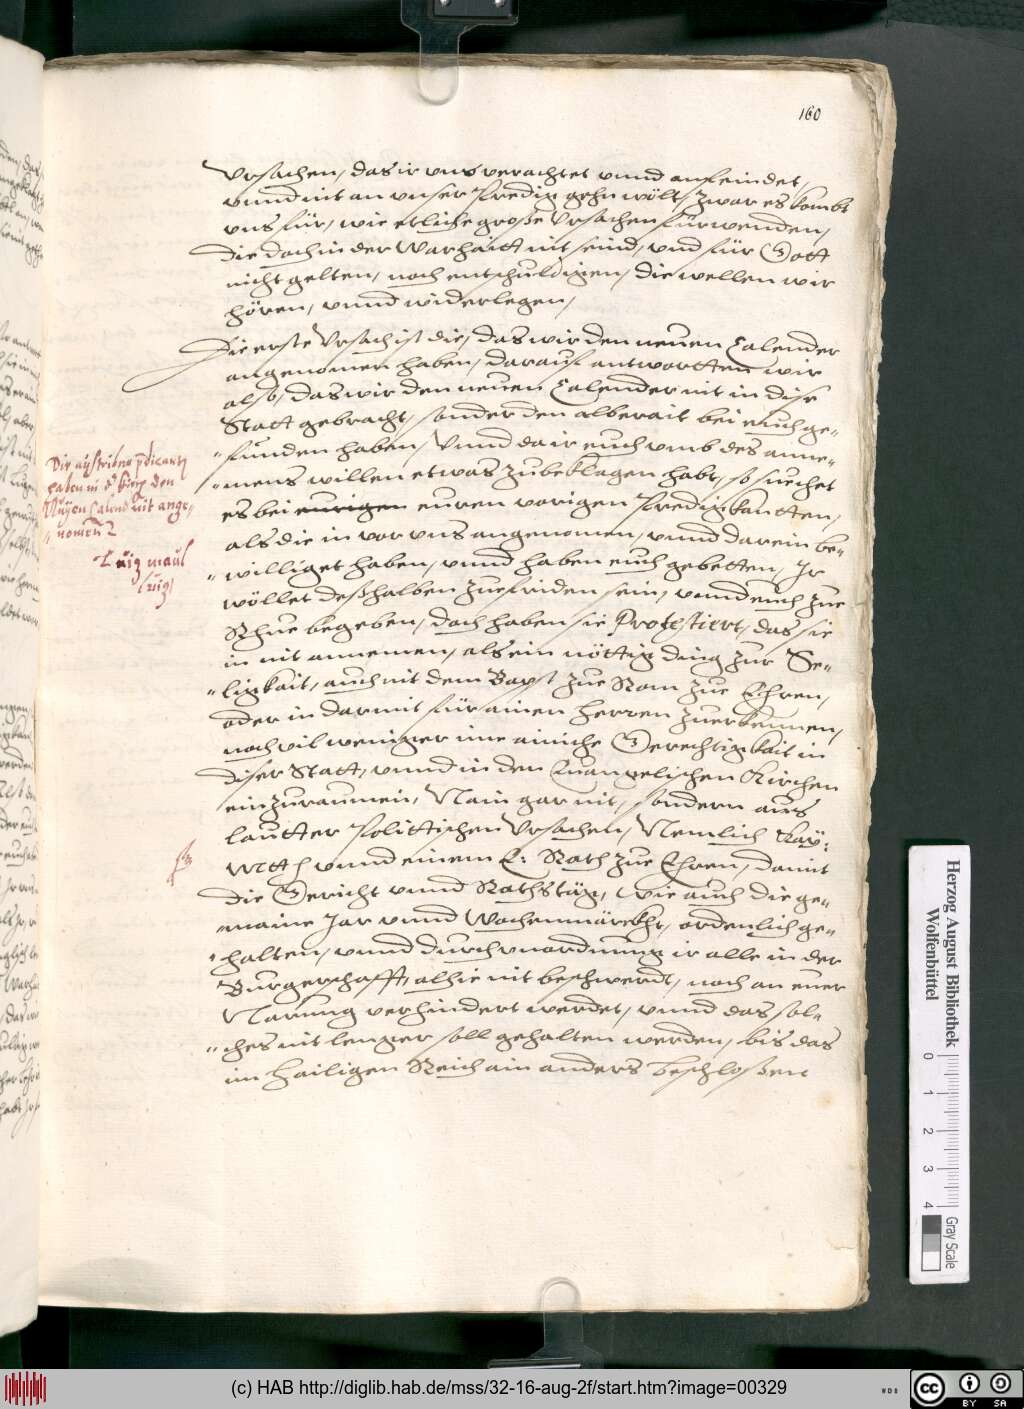 160
Vrsachen, das ir vns verachtet vnnd anfeindet,
vnnd nit an vnser Predig gehn wölt, Zwar es kombt
vns für, wie etliche große Vrsachen fürwenden,
die doch in der Warhaitt nit seind, vnd für Gott
nicht gelten, noch entschuldigen, die wellen wir
hören, vnnd widerlegen,
Die erste Vrsach ist die, das wir den neuen Calender
angenomen haben, darauf antwortten wir
also, das wir den neuen Calender nit in dise
Statt gebracht, sonder den alberait bei euch ge-
-funden haben, Vnnd da ir euch vmb des anne-
-mens willen etwas zubeklagen habt, so suechet
es bei eurigen euren vorigen Predigkantten,
als die in vor vns angenomen, vnnd darein be-
-williget haben, vnnd haben euch gebetten, Ir
wöllet deßhalben zuefriden sein, vnnd euch zue
Rhue begeben, doch haben sie Protestiert, das sie
in nit annemen, als ein nöttig ding zur Se-
-ligkait, auch nit dem Bapst zue Rom zue Ehren,
oder in darmit für ainen Herren zuerkennen,
noch vil weniger ime ainiche Gerechtigkait in
diser Statt, vnnd in den Euangelischen Kirchen
einzuraumen, Nain gar nit, sondern aus
lautter Polittischen Vrsachen, Nemlich Kay:
Mtt vnnd einem E: Rath zue Ehren, damit
die Gericht vnnd Rathstäg, wie auch die ge-
-maine Jar vnnd Wochenmärckht, ordenlich ge-
-halten, vnnd durch vnordnung ir alle in der
Burgerschafft, alhie nit beschwerdt, noch an euer
Narung verhindert werdet, vnnd das sol-
-ches nit lenger soll gehalten werden, bis das
im Hailigen Reich ain anders beschloßen
Die außtriben predicantn
haben in d
den
Neüyen Calend nit ange-
-nomen
Leüg maul
leüg
Herzog August Bibliothek
Wolfenbüttel
0 1 2 3 4
Gray Scale
(c) HAB http://diglib.hab.de/mss/32-16-aug-2f/start.htm?image=00329
WDB
CC BY SA